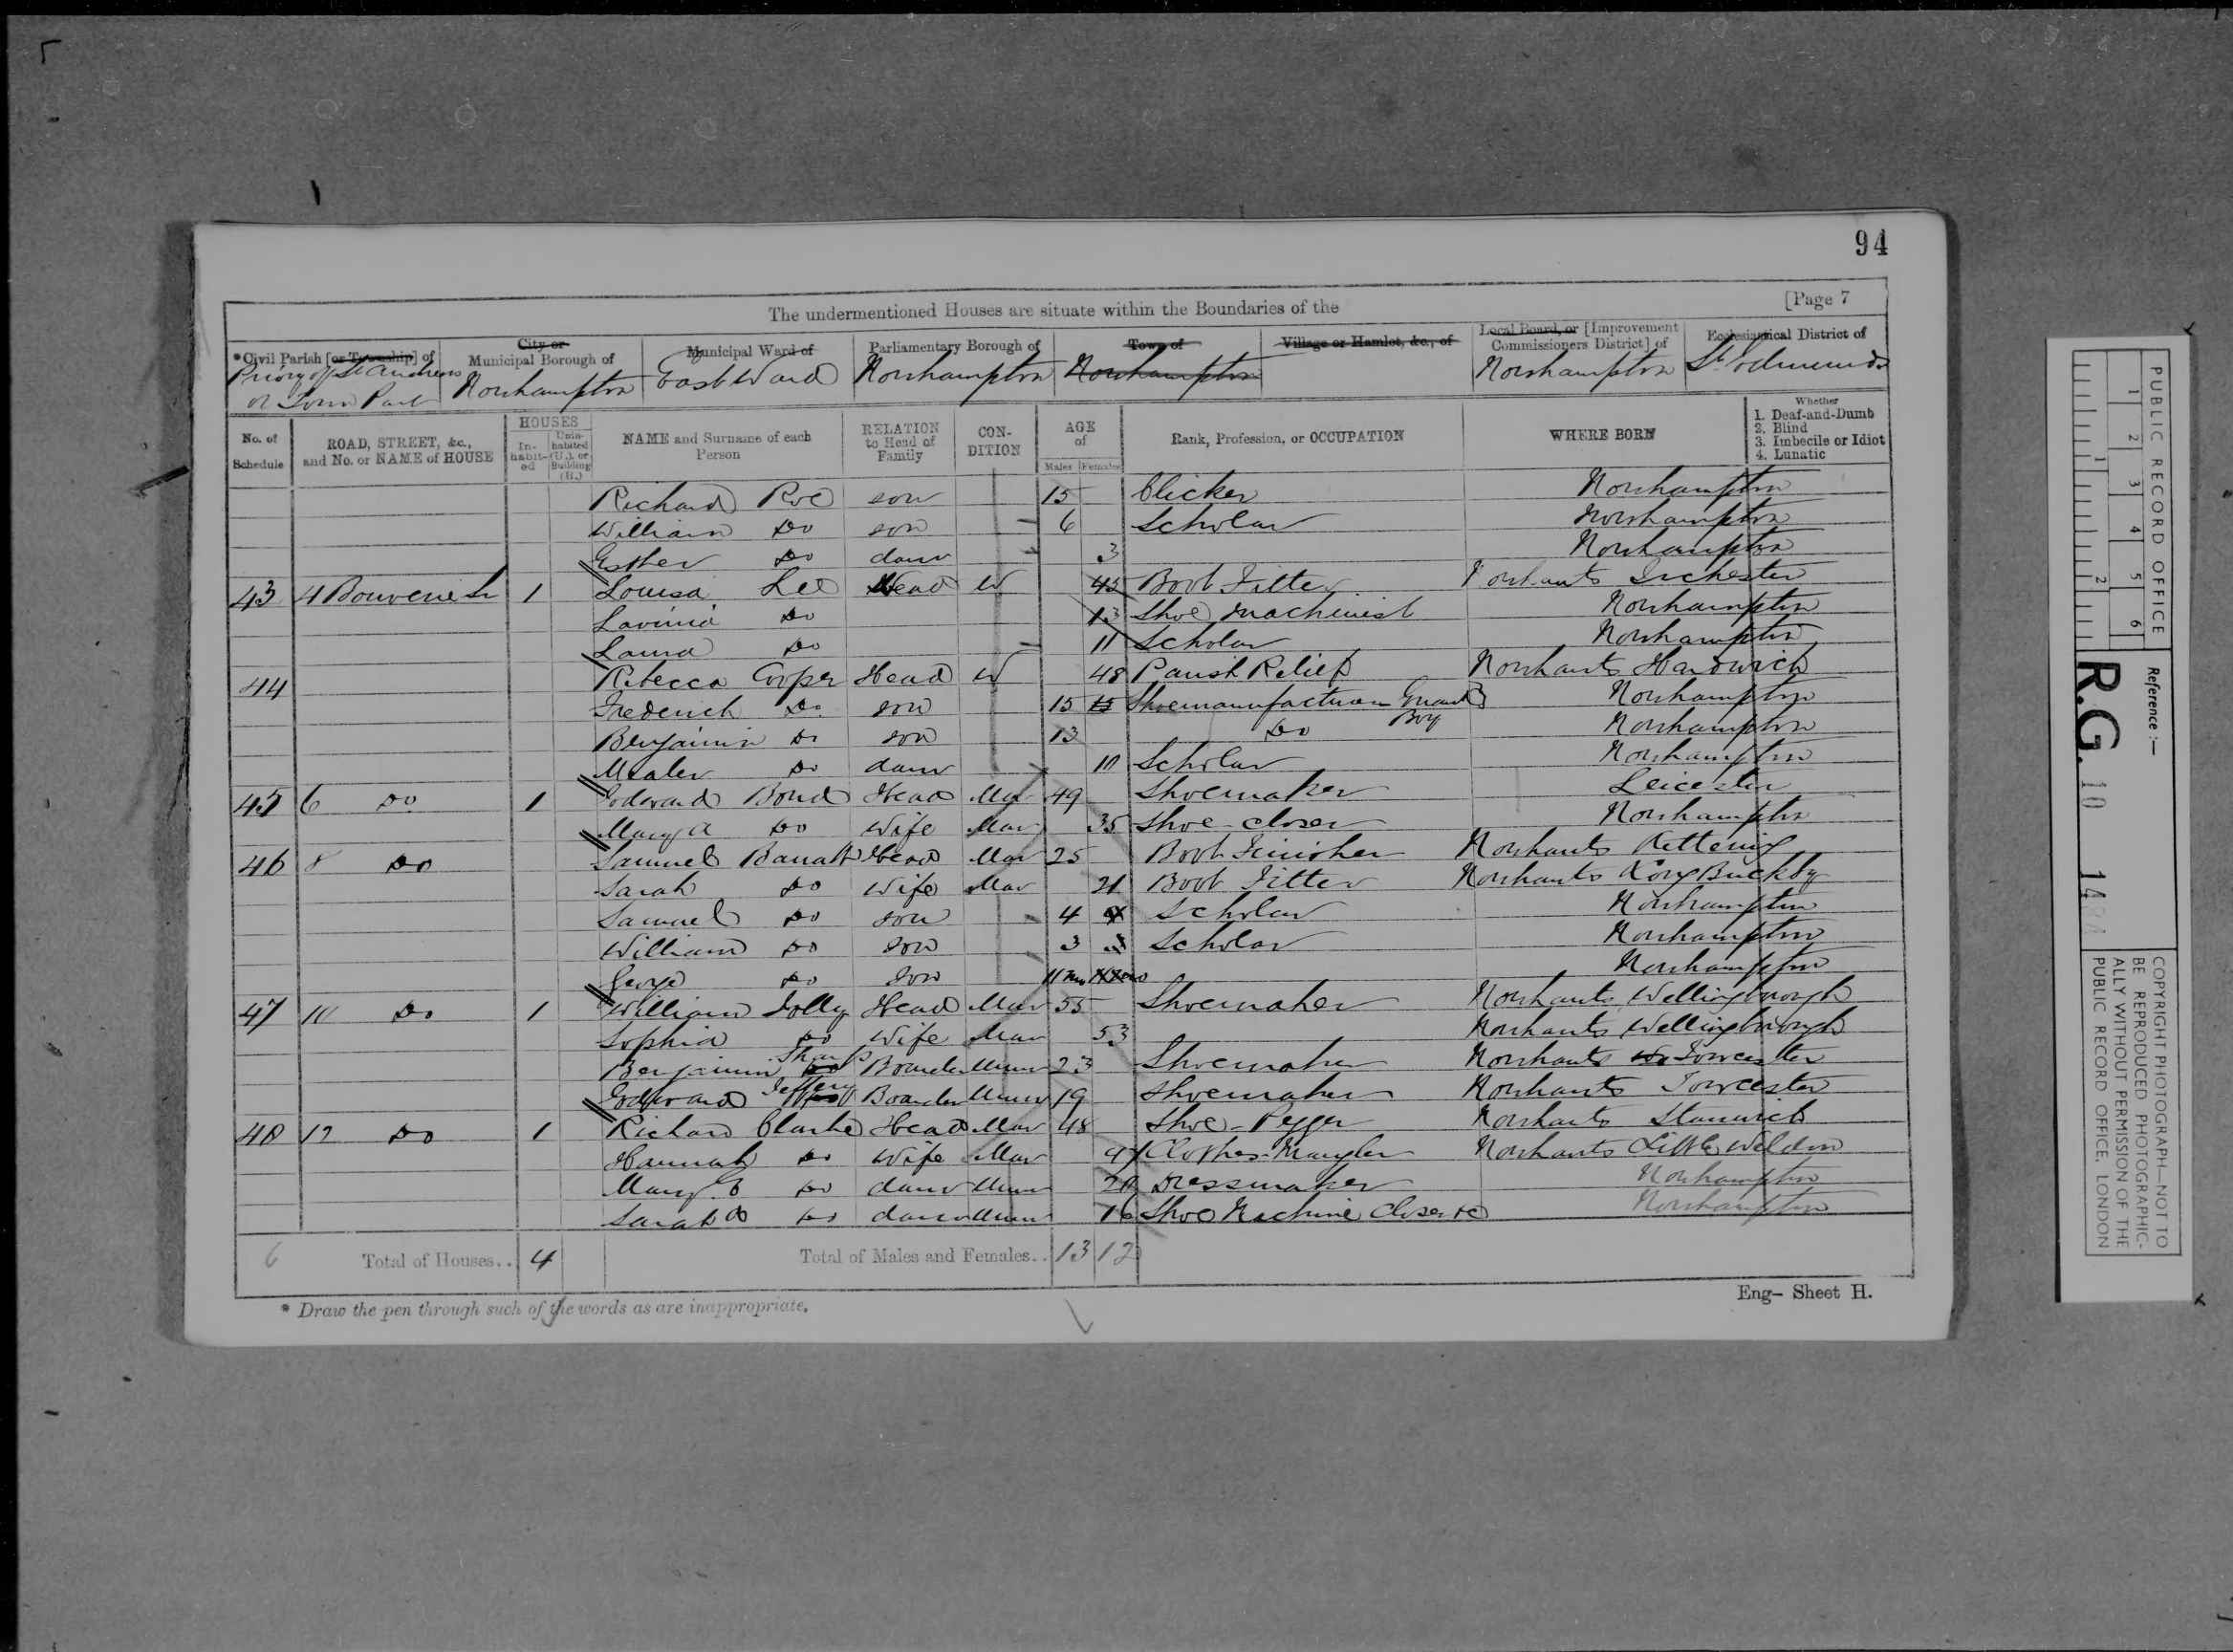 94
The undermentioned Houses are situate within the Boundaries of the [Page 7
*Civil Parish [or Township] of
Priory of St Andrews
or Town Part
City or
Municipal Borough of
Northampton
Municipal Ward of
East Ward
Parliamentary Borough of
Northampton
Town of
Northampton
Village or Hamlet, &c., of
Local Board, or [Improvement
Commissioners District] of
Northampton
Ecclesiastical District of
St Edmunds
No. of
Schedule
ROAD, STREET, &c.,
and No. or NAME of HOUSE
HOUSES
In-
habit-
ed
Unin-
habited
(U.), or
Building
(B.)
NAME and Surname of each
Person
RELATION
to Head of
Family
CON-
DITION
AGE
of
Males Females
Rank, Profession, or OCCUPATION
WHERE BORN
Whether
1. Deaf-and-Dumb
2. Blind
3. Imbecile or Idiot
4. Lunatic
Richard Roe son 15 Clicker Northampton
William Do son 6 Scholar Northampton
Esther Do daur 3 Northampton
43 4 Bouverie St 1 Louisa Lee Head W 45 Boot Fitter Northants Irchester
Lavinia Do 13 Shoe Machinist Northampton
Laura Do 11 Scholar Northampton
44 Rebecca Cooper Head W 48 Parish Relief Northants Hardwick
Frederick Do son 15 15 Shoemanufacturers Errand Boy Northampton
Benjamin Do son 13 Do Northampton
Do daur Scholar Northampton
45 6 Do 1 Edward Bond Head Mar 49 Shoemaker Leicester
Mary A Do Wife Mar 35 Shoe-closer Northampton
46 8 Do Samuel Barratt Head Mar 25 Boot Finisher Northants Kettering
Sarah Do Wife Mar 21 Boot Fitter Northants Long Buckby
Samuel Do son 4 4 Scholar Northampton
William Do son 3 3 Scholar Northampton
George Do son 11 mo 11 mo Northampton
47 10 Do 1 William Jolly Head Mar 55 Shoemaker Northants Wellingborough
Sophia Do Wife Mar 53 Northants Wellingborough
Benjamin Sharp Boarder Unm 23 Shoemaker Northants Towcester
Edward Jeffery Boarder Unm 19 Shoemaker Northants Towcester
48 12 Do 1 Richard Clarke Head Mar 48 Shoe-Pegger Northants Stanwick
Hannah Do Wife Mar 47 Clothes-Mangler Northants Little Weldon
Mary E Do daur Unm Dressmaker Northampton
Sarah A Do daur Unm 16 Shoe Machine Closer Northampton
6 Total of Houses.. 4 Total of Males and Females.. 13 12
* Draw the pen through such of the words as are inappropriate.
Eng- Sheet H.
PUBLIC RECORD OFFICE
1 2 3 4 5 6
1 2
Reference :—
R.G. 10 14
COPYRIGHT PHOTOGRAPH—NOT TO
BE REPRODUCED PHOTOGRAPHIC-
ALLY WITHOUT PERMISSION OF THE
PUBLIC RECORD OFFICE, LONDON